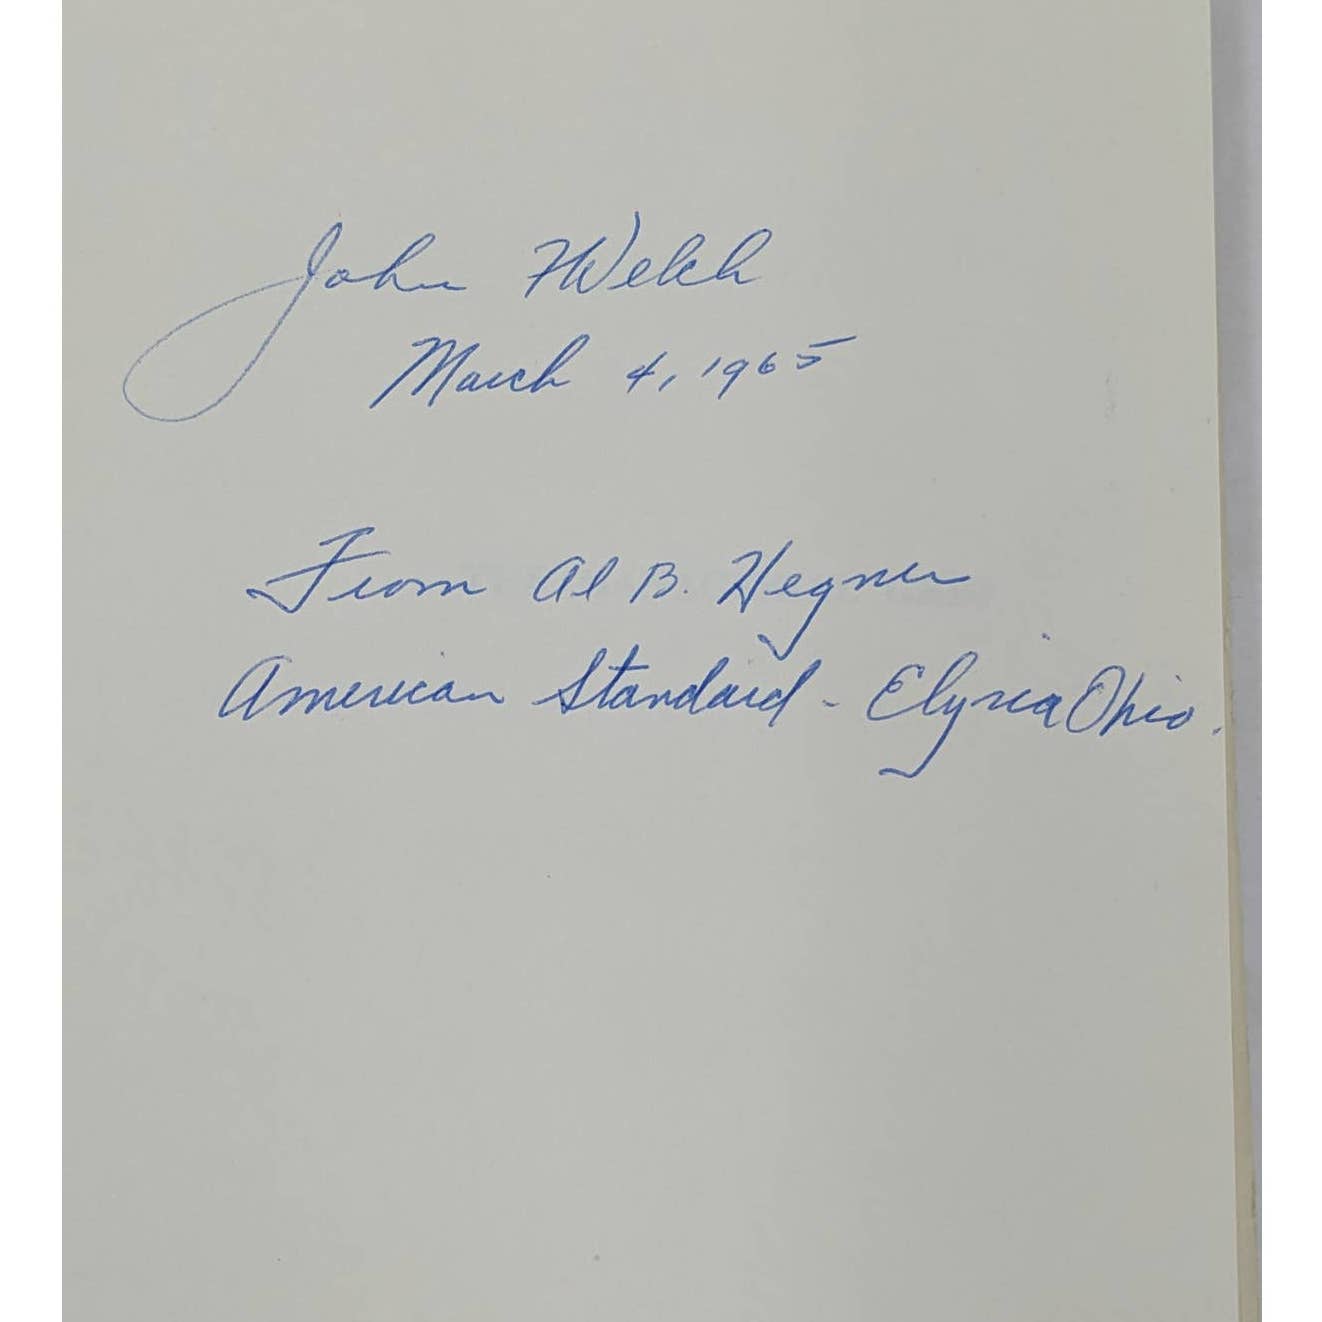 John F Welch
March 4, 1965
From Al B. Hegner
American Standard - Elyria Ohio.